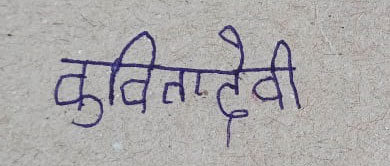 कुविता देवी